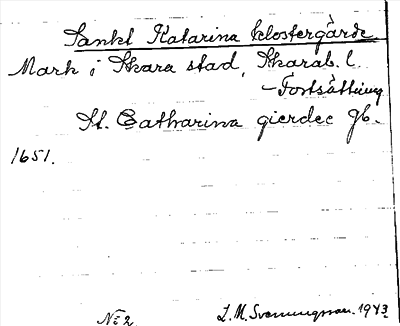 Sankt Katarina klostergärde
Mark i Skara stad, Skarab. l.
- Fortsättning
St. Catharina gierdec Jb.
1651.
No 2. L. M. Svennungsson. 1943